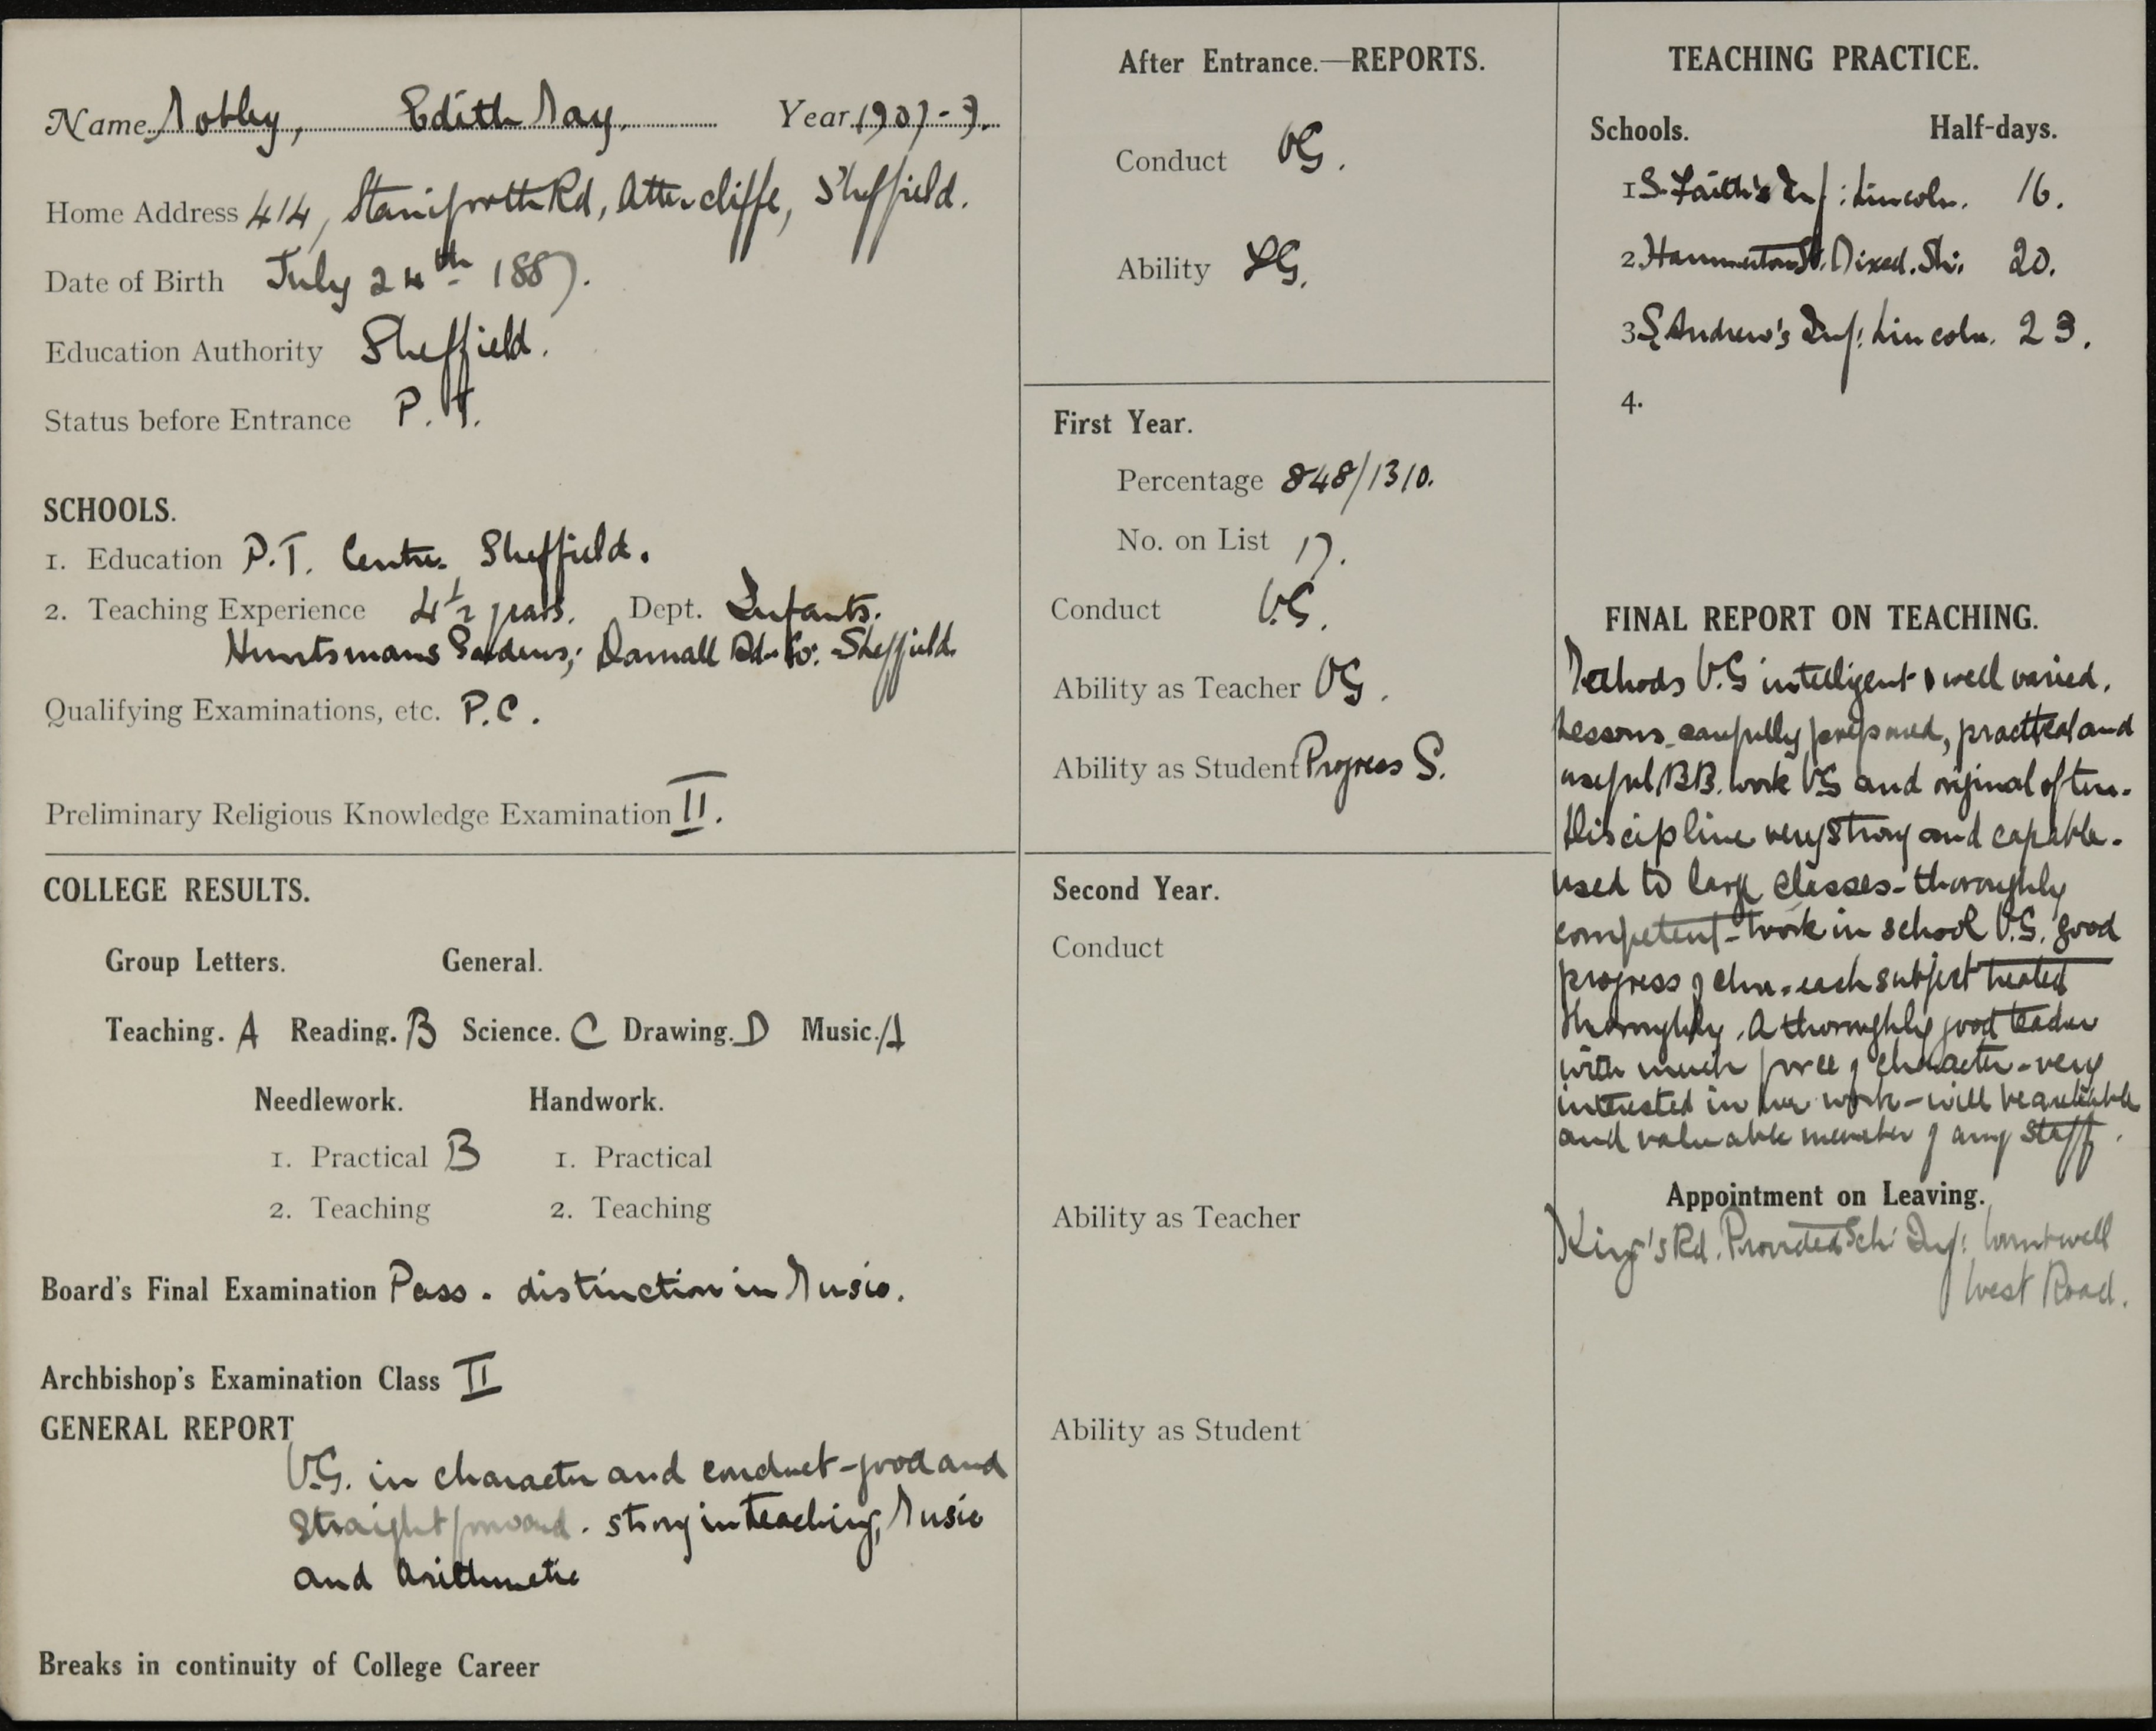 Name Mobley, Edith May. Year 1907-9.
Home Address 414, Staniforth Rd, Attercliffe, Sheffield.
Date of Birth July 24th 1887.
Education Authority Sheffield.
Status before Entrance P.T.
SCHOOLS.
1. Education P.T. Centre. Sheffield.
2. Teaching Experience 4½ years. Dept. Infants.
Huntsmans Gardens; Darnall Rd. Co: Sheffield.
Qualifying Examinations, etc. P.C.
Preliminary Religious Knowledge Examination II.
COLLEGE RESULTS.
Group Letters. General.
Teaching. A Reading. B Science. C Drawing. D Music. A
Needlework. Handwork.
1. Practical B 1. Practical
2. Teaching 2. Teaching
Board's Final Examination Pass. distinction in Music.
Archbishop's Examination Class II
GENERAL REPORT
V.G. in character and conduct - good and
straightforward. strong in teaching, Music
and Arithmetic
Breaks in continuity of College Career
After Entrance.—REPORTS.
Conduct VG.
Ability G.
First Year.
Percentage 848/1310.
No. on List 17.
Conduct V.G.
Ability as Teacher VG.
Ability as Student Progress S.
Second Year.
Conduct
Ability as Teacher
Ability as Student
TEACHING PRACTICE.
Schools. Half-days.
1 S. Faith's Inf: Lincoln. 16.
2. Hammerton St. Mixed. Sh: 20.
3 S. Andrew's Inf: Lincoln. 23.
4.
FINAL REPORT ON TEACHING.
Methods V.G intelligent & well varied.
Lessons carefully prepared, practical and
useful BB. work VG and original often.
Discipline very strong and capable.
used to large classes - thoroughly
competent - work in school V.G. good
progress of chn. each subject treated
thoroughly. A thoroughly good teacher
with much force of character - very
interested in her work - will be a
and valuable member of any staff.
Appointment on Leaving.
King's Rd. Provided Sch: Inf:
West Road.